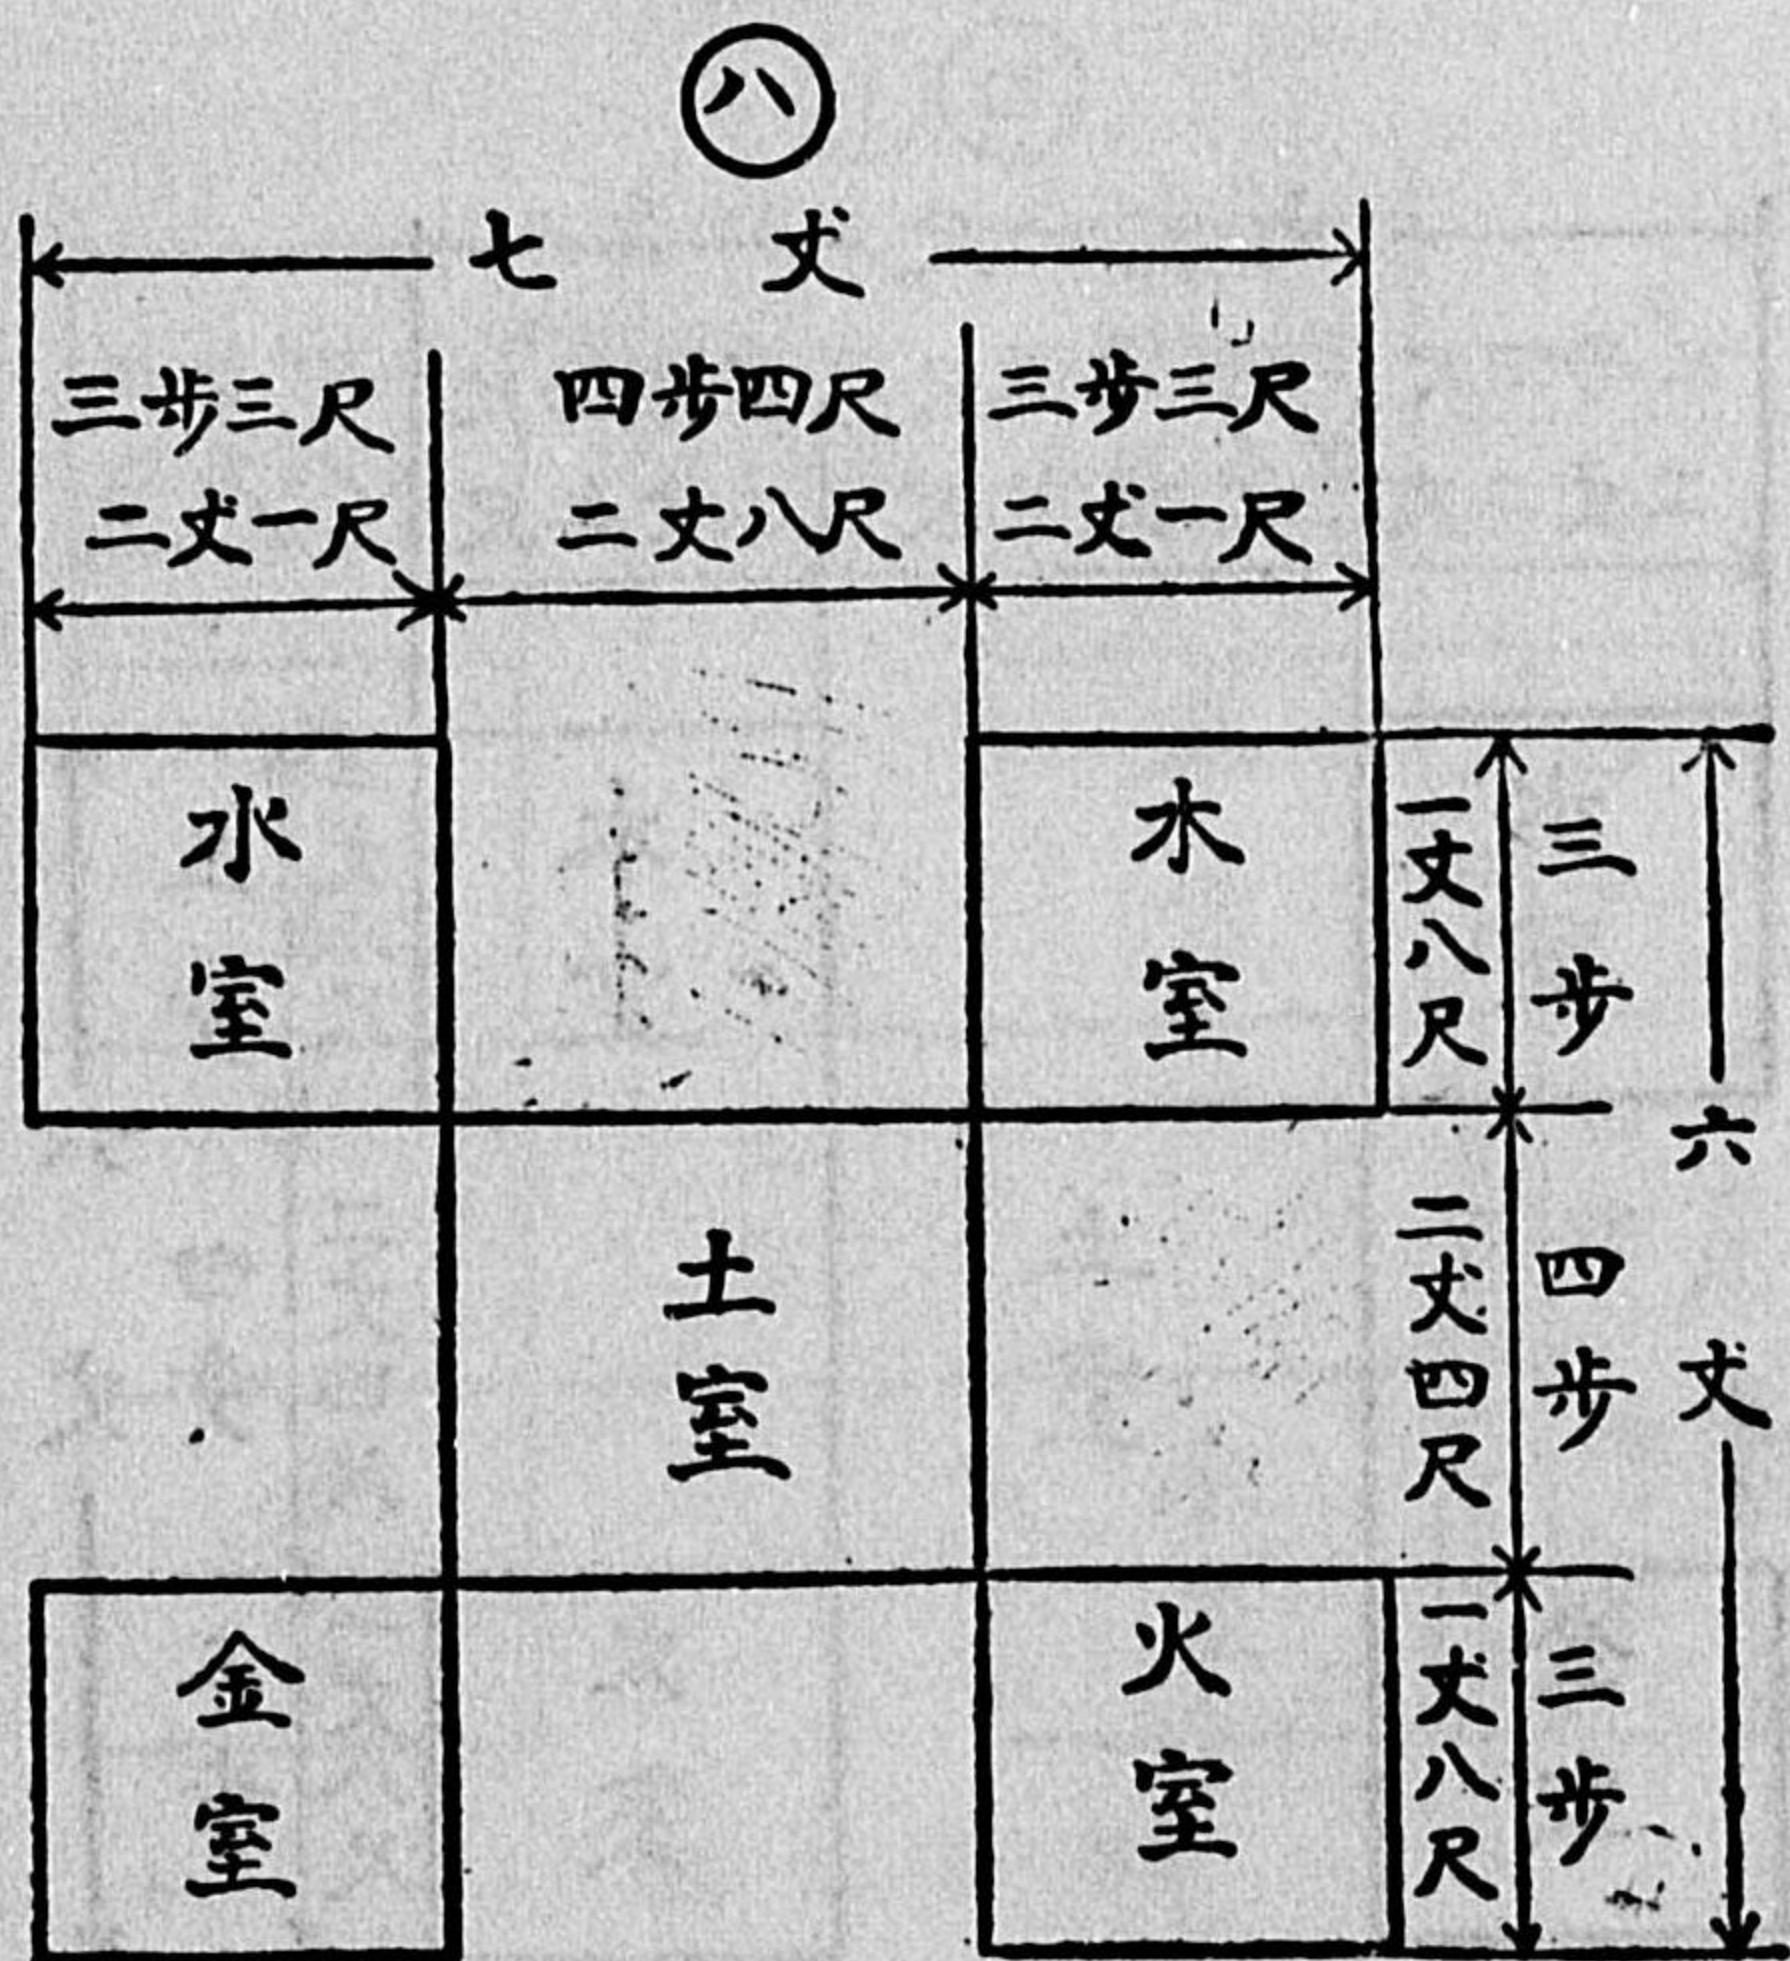 八
七丈
三步三尺
二丈一尺
四步四尺
二丈八尺
三步三尺
二丈一尺
水室
水室
一丈八尺
三步
六丈
土室
二丈四尺
四步
金室
火室
一丈八尺
三步